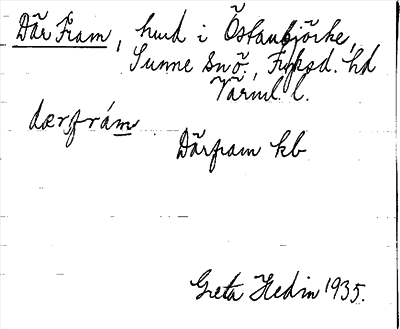 Där Fram, hmd i Östanbjörke,
Sunne snö., Fryksd. hd
Värml. l.
dærfrám
Därfram kb
Greta Hedin 1935.